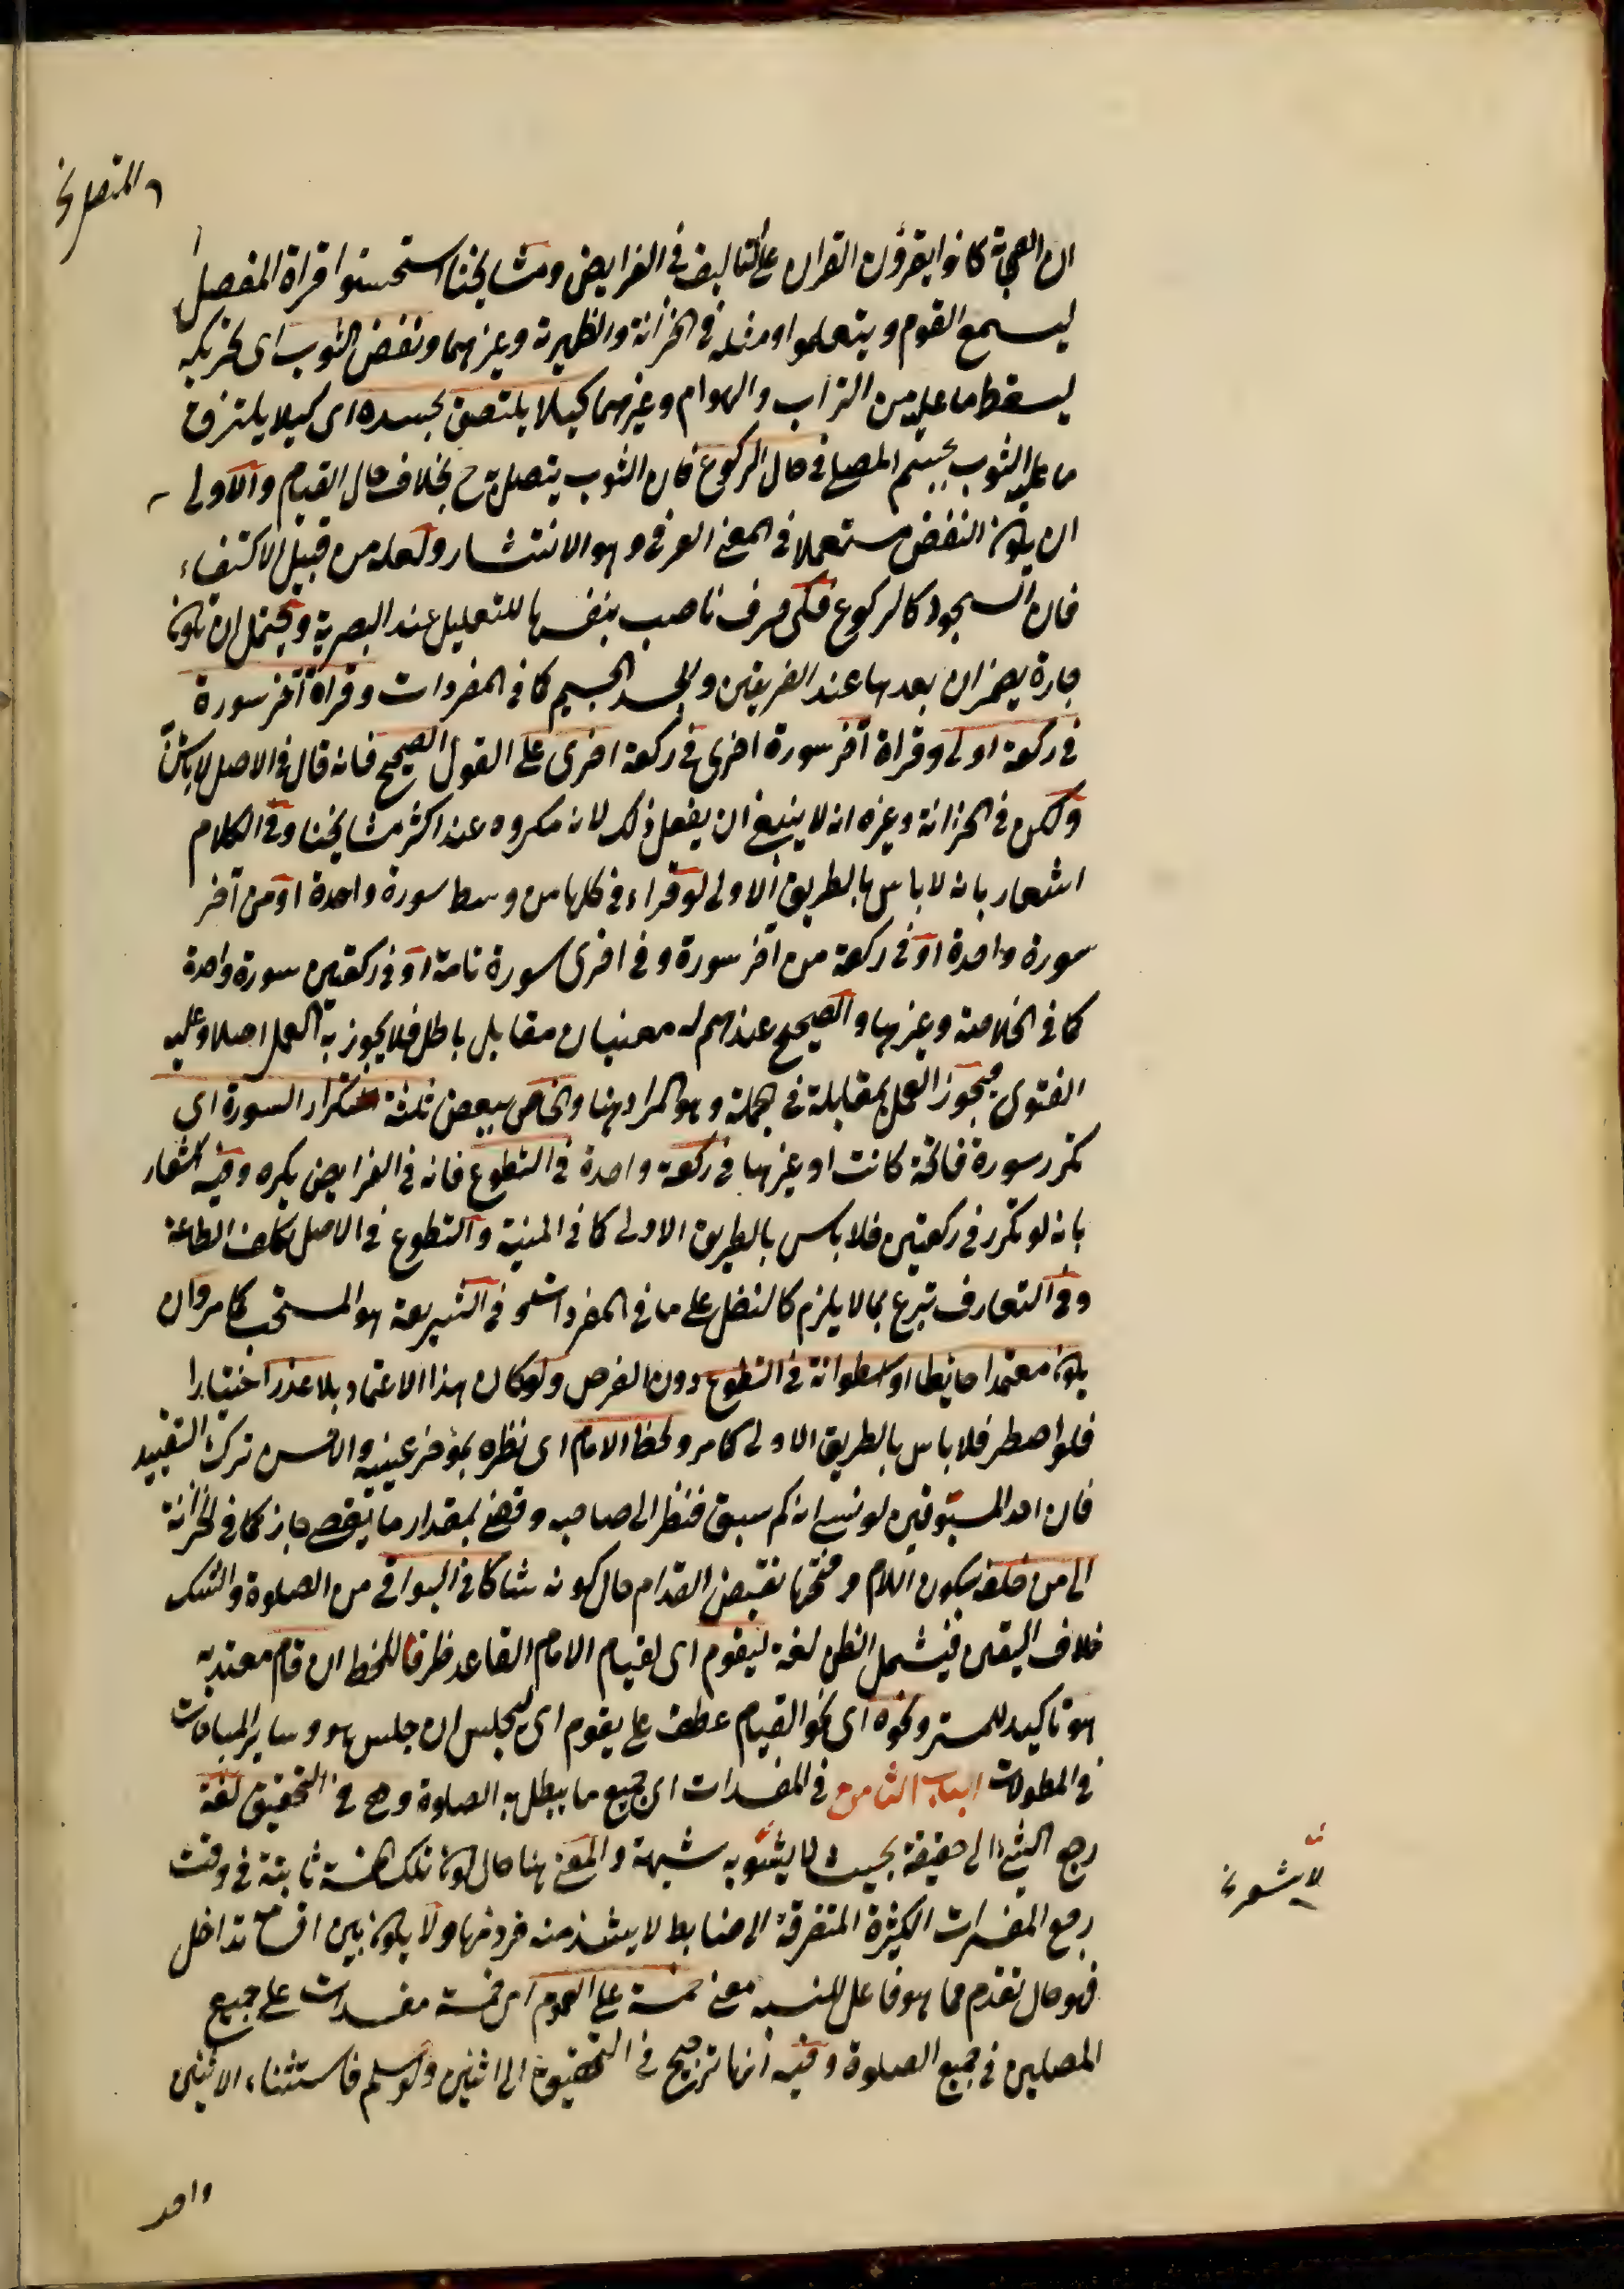 ان الصحابة كانوا يقرؤن القران على التاليف فى الفرايض ومشايخنا استحسنوا قراة المفصل
ليسمع القوم ويتعلموا ومثله فى الخزانة والظهيرية وغيرهما ونفض الثوب اى تحريكه
ليسقط ما عليه من التراب والهوام وغيرهما كيلا يلتصق بجسده اى كيلا يلتزق
ما عليه الثوب بجسم المصلى فى حال الركوع فان الثوب يتصل به ح بخلاف حال القيام والاولى
ان يكون النفض مستعملا فى المعنى العرفى وهو الانتشار ولعله من قبيل الاكتفاء
فان السجود كالركوع فكى حرف ناصب بنفسها للتعليل عند البصرية ويحتمل ان تكون
جارة يضمر ان بعدها عند الفريقين والجسد الجسم كما فى المفردات وقراة آخر سورة
فى ركعة اولى وقراة آخر سورة اخرى فى ركعة اخرى على القول الصحيح فانه قال فى الاصل لاباس
ولكن فى الخزانة وغيره انه لا ينبغى ان يفعل ذلك لانه مكروه عند اكثر مشايخنا وفى الكلام
اشعار بانه لا باس بالطريق الاولى لو قراء فى كلها من وسط سورة واحدة او من آخر
سورة واحدة او فى ركعة من آخر سورة وفى اخرى سورة تامة او فى ركعتين سورة واحدة
كما فى الخلاصة وغيرها والصحيح عندهم له معنيان مقابل باطل فلا يجوز به العمل اصلا وعليه
الفتوى فيجوز العمل بمقابلة فى الجملة وهو المراد هنا والخاص ببعض ثلثة تكرار السورة اى
تكرر سورة فاتحة كانت او غيرها فى ركعة واحدة فى التطوع فانه فى الفرايض يكره وفيه اشعار
بانه لو تكرر فى ركعتين فلا باس بالطريق الاولى كما فى المنية والتطوع فى الاصل تكلف الطاعة
وفى التعارف تبرع بما لا يلزم كالنفل على ما فى المفردات وفى الشريعة هو المستحب كما مر وان
يكون معتمدا حايطا او اسطوانة فى التطوع دون الفرض ولو كان هذا الاعتماد بلا عذر اختيارا
فلو اضطر فلا باس بالطريق الاولى كما مر ولحظ الامام اى نظره بمؤخر عينيه والاحسن ترك التقييد
فان احد المسبوقين لو نسى انه كم سبق فنظر الى صاحبه وقضى بمقدار ما يقضى جاز كما فى الخزانة
الى من خلفه بسكون اللام وفتحها نقيض القدام حال كونه شاكا فى البواقى من الصلوة والشك
خلاف اليقين فيشمل الظن لغة ليقوم اى لقيام الامام القاعد ظرف اللحظ ان قام معتد به
هو تاكيد للمستتر ونحوه اى نحو القيام عطف على يقوم اى ليجلس ان جلس هو وساير المباحات
فى المطولات الباب الثامن فى المفسدات اى جميع ما يبطل به الصلوة وهى فى التحقيق لغة
رجع الشئ الى حقيقة بحيث لا يشوبه شبهة والمعنى هنا حال كون تلك الخمسة ثابتة فى وقت
رجع المفسدات الكثيرة المتفرقة الى ضابط لا يشذ منه فرد منها ولا يكون بين اقسامه تداخل
فهو حال تقدم مما هو فاعل للنسبة معنى خمسة على العموم اى خمسة مفسدات على جميع
المصلين فى جميع الصلوة وفيه أنها ترجع فى التحقيق الى اثنين ولو سلم فاستثناء الاثنين
واحد